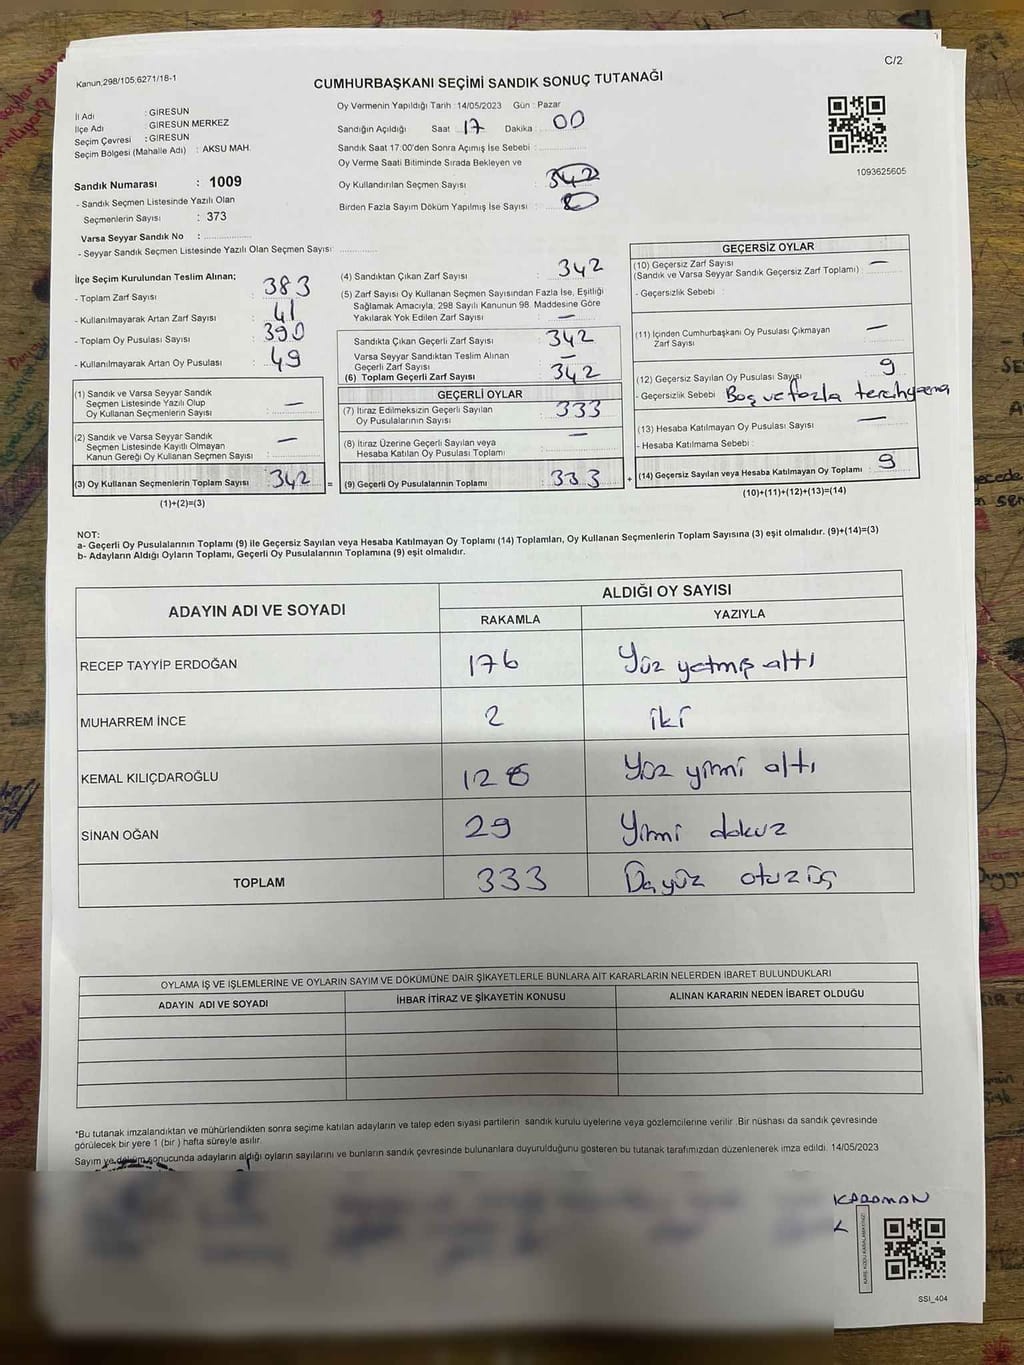 C/2
Kanun,298/105;6271/18-1
CUMHURBAŞKANI SEÇİMİ SANDIK SONUÇ TUTANAĞI
İl Adı : GİRESUN
İlçe Adı : GİRESUN MERKEZ
Seçim Çevresi : GİRESUN
Seçim Bölgesi (Mahalle Adı) : AKSU MAH.
Oy Vermenin Yapıldığı Tarih : 14/05/2023 Gün : Pazar
Sandığın Açıldığı Saat 17 Dakika 00
Sandık Saat 17:00'den Sonra Açımış İse Sebebi :
Oy Verme Saati Bitiminde Sırada Bekleyen ve
Oy Kullandırılan Seçmen Sayısı : 342
Birden Fazla Sayım Döküm Yapılmış İse Sayısı :
1093625605
Sandık Numarası : 1009
- Sandık Seçmen Listesinde Yazılı Olan
Seçmenlerin Sayısı : 373
Varsa Seyyar Sandık No :
- Seyyar Sandık Seçmen Listesinde Yazılı Olan Seçmen Sayısı :
İlçe Seçim Kurulundan Teslim Alınan;
- Toplam Zarf Sayısı : 383
- Kullanılmayarak Artan Zarf Sayısı : 41
- Toplam Oy Pusulası Sayısı : 390
- Kullanılmayarak Artan Oy Pusulası : 49
(1) Sandık ve Varsa Seyyar Sandık
Seçmen Listesinde Yazılı Olup
Oy Kullanan Seçmenlerin Sayısı : —
(2) Sandık ve Varsa Seyyar Sandık
Seçmen Listesinde Kayıtlı Olmayan
Kanun Gereği Oy Kullanan Seçmen Sayısı : —
(3) Oy Kullanan Seçmenlerin Toplam Sayısı : 342 =
(1)+(2)=(3)
(4) Sandıktan Çıkan Zarf Sayısı : 342
(5) Zarf Sayısı Oy Kullanan Seçmen Sayısından Fazla İse, Eşitliği
Sağlamak Amacıyla, 298 Sayılı Kanunun 98. Maddesine Göre
Yakılarak Yok Edilen Zarf Sayısı : —
Sandıkta Çıkan Geçerli Zarf Sayısı : 342
Varsa Seyyar Sandıktan Teslim Alınan
Geçerli Zarf Sayısı : —
(6) Toplam Geçerli Zarf Sayısı : 342
GEÇERLİ OYLAR
(7) İtiraz Edilmeksizin Geçerli Sayılan
Oy Pusulalarının Sayısı : 333
(8) İtiraz Üzerine Geçerli Sayılan veya
Hesaba Katılan Oy Pusulası Toplamı : —
(9) Geçerli Oy Pusulalarının Toplamı : 333 +
GEÇERSİZ OYLAR
(10) Geçersiz Zarf Sayısı : —
(Sandık ve Varsa Seyyar Sandık Geçersiz Zarf Toplamı)
- Geçersizlik Sebebi :
(11) İçinden Cumhurbaşkanı Oy Pusulası Çıkmayan
Zarf Sayısı : —
(12) Geçersiz Sayılan Oy Pusulası Sayısı : 9
- Geçersizlik Sebebi : Boş ve fazla tercih
(13) Hesaba Katılmayan Oy Pusulası Sayısı : —
- Hesaba Katılmama Sebebi :
(14) Geçersiz Sayılan veya Hesaba Katılmayan Oy Toplamı : 9
(10)+(11)+(12)+(13)=(14)
NOT:
a- Geçerli Oy Pusulalarının Toplamı (9) ile Geçersiz Sayılan veya Hesaba Katılmayan Oy Toplamı (14) Toplamları, Oy Kullanan Seçmenlerin Toplam Sayısına (3) eşit olmalıdır. (9)+(14)=(3)
b- Adayların Aldığı Oyların Toplamı, Geçerli Oy Pusulalarının Toplamına (9) eşit olmalıdır.
ADAYIN ADI VE SOYADI
ALDIĞI OY SAYISI
RAKAMLA YAZIYLA
RECEP TAYYİP ERDOĞAN 176 Yüz yetmiş altı
MUHARREM İNCE 2 iki
KEMAL KILIÇDAROĞLU 126 Yüz yirmi altı
SİNAN OĞAN 29 Yirmi dokuz
TOPLAM 333 Üçyüz otuz üç
OYLAMA İŞ VE İŞLEMLERİNE VE OYLARIN SAYIM VE DÖKÜMÜNE DAİR ŞİKAYETLERLE BUNLARA AİT KARARLARIN NELERDEN İBARET BULUNDUKLARI
ADAYIN ADI VE SOYADI İHBAR İTİRAZ VE ŞİKAYETİN KONUSU ALINAN KARARIN NEDEN İBARET OLDUĞU
*Bu tutanak imzalandıktan ve mühürlendikten sonra seçime katılan adayların ve talep eden siyasi partilerin sandık kurulu üyelerine veya gözlemcilerine verilir. Bir nüshası da sandık çevresinde
görülecek bir yere 1 (bir ) hafta süreyle asılır.
Sayım ve döküm sonucunda adayların aldığı oyların sayılarını ve bunların sandık çevresinde bulunanlara duyurulduğunu gösteren bu tutanak tarafımızdan düzenlenerek imza edildi. 14/05/2023
KARAMAN
KARE KODU KARALAMAYINIZ!
SSİ_404